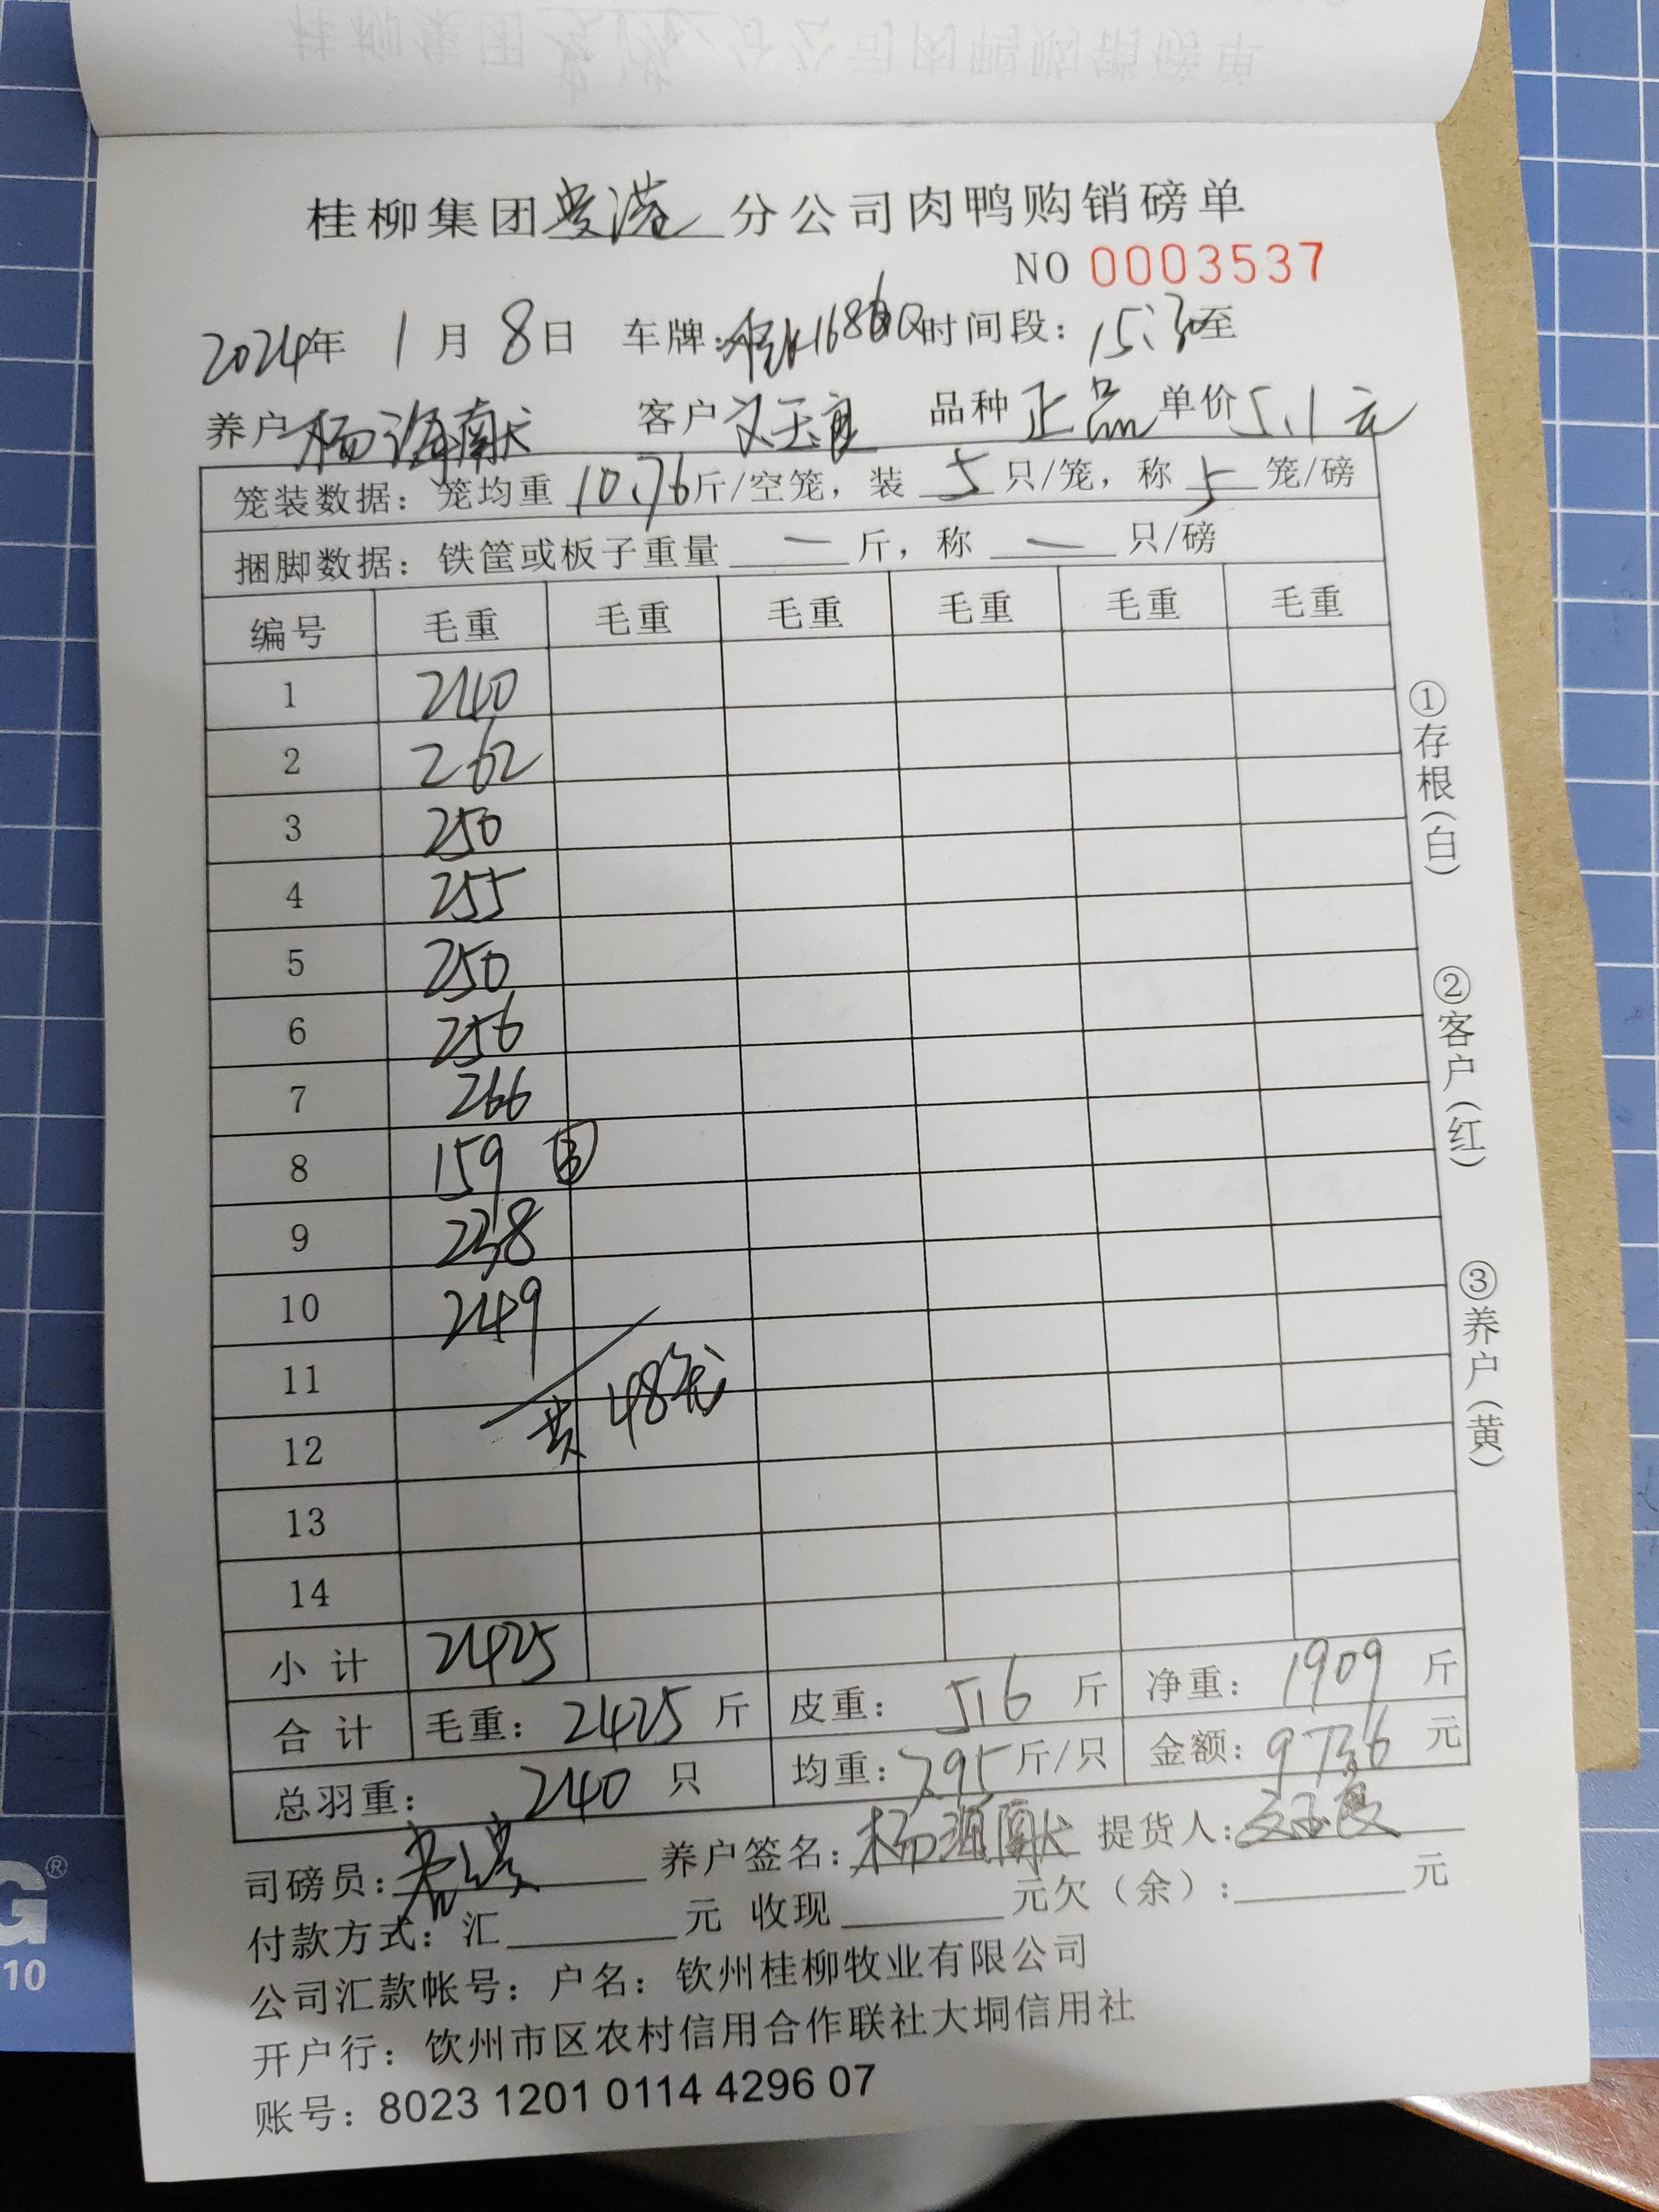 桂柳集团贵港分公司肉鸭购销磅单
NO 0003537
2024年 1月 8日 车牌: 时间段: 15:30至
养户 杨 客户 文玉良 品种 正品 单价 5.1元
笼装数据: 笼均重 10.76斤/空笼, 装 5 只/笼, 称 5 笼/磅
捆脚数据: 铁筐或板子重量 — 斤, 称 — 只/磅
编号 毛重 毛重 毛重 毛重 毛重 毛重
1 240
2 262
3 250
4 255
5 250
6 256
7 266
8 159 ③
9 238
10 249
11
12 共48笼
13
14
小计 2425
合计 毛重: 2425 斤 皮重: 516 斤 净重: 1909 斤
总羽重: 240 只 均重: 7.95 斤/只 金额: 9736 元
司磅员: 养户签名: 杨 提货人: 文玉良
付款方式: 汇 元 收现 元欠(余): 元
公司汇款帐号: 户名: 钦州桂柳牧业有限公司
开户行: 钦州市区农村信用合作联社大垌信用社
账号: 8023 1201 0114 4296 07
①存根(白)
②客户(红)
③养户(黄)
G®
10